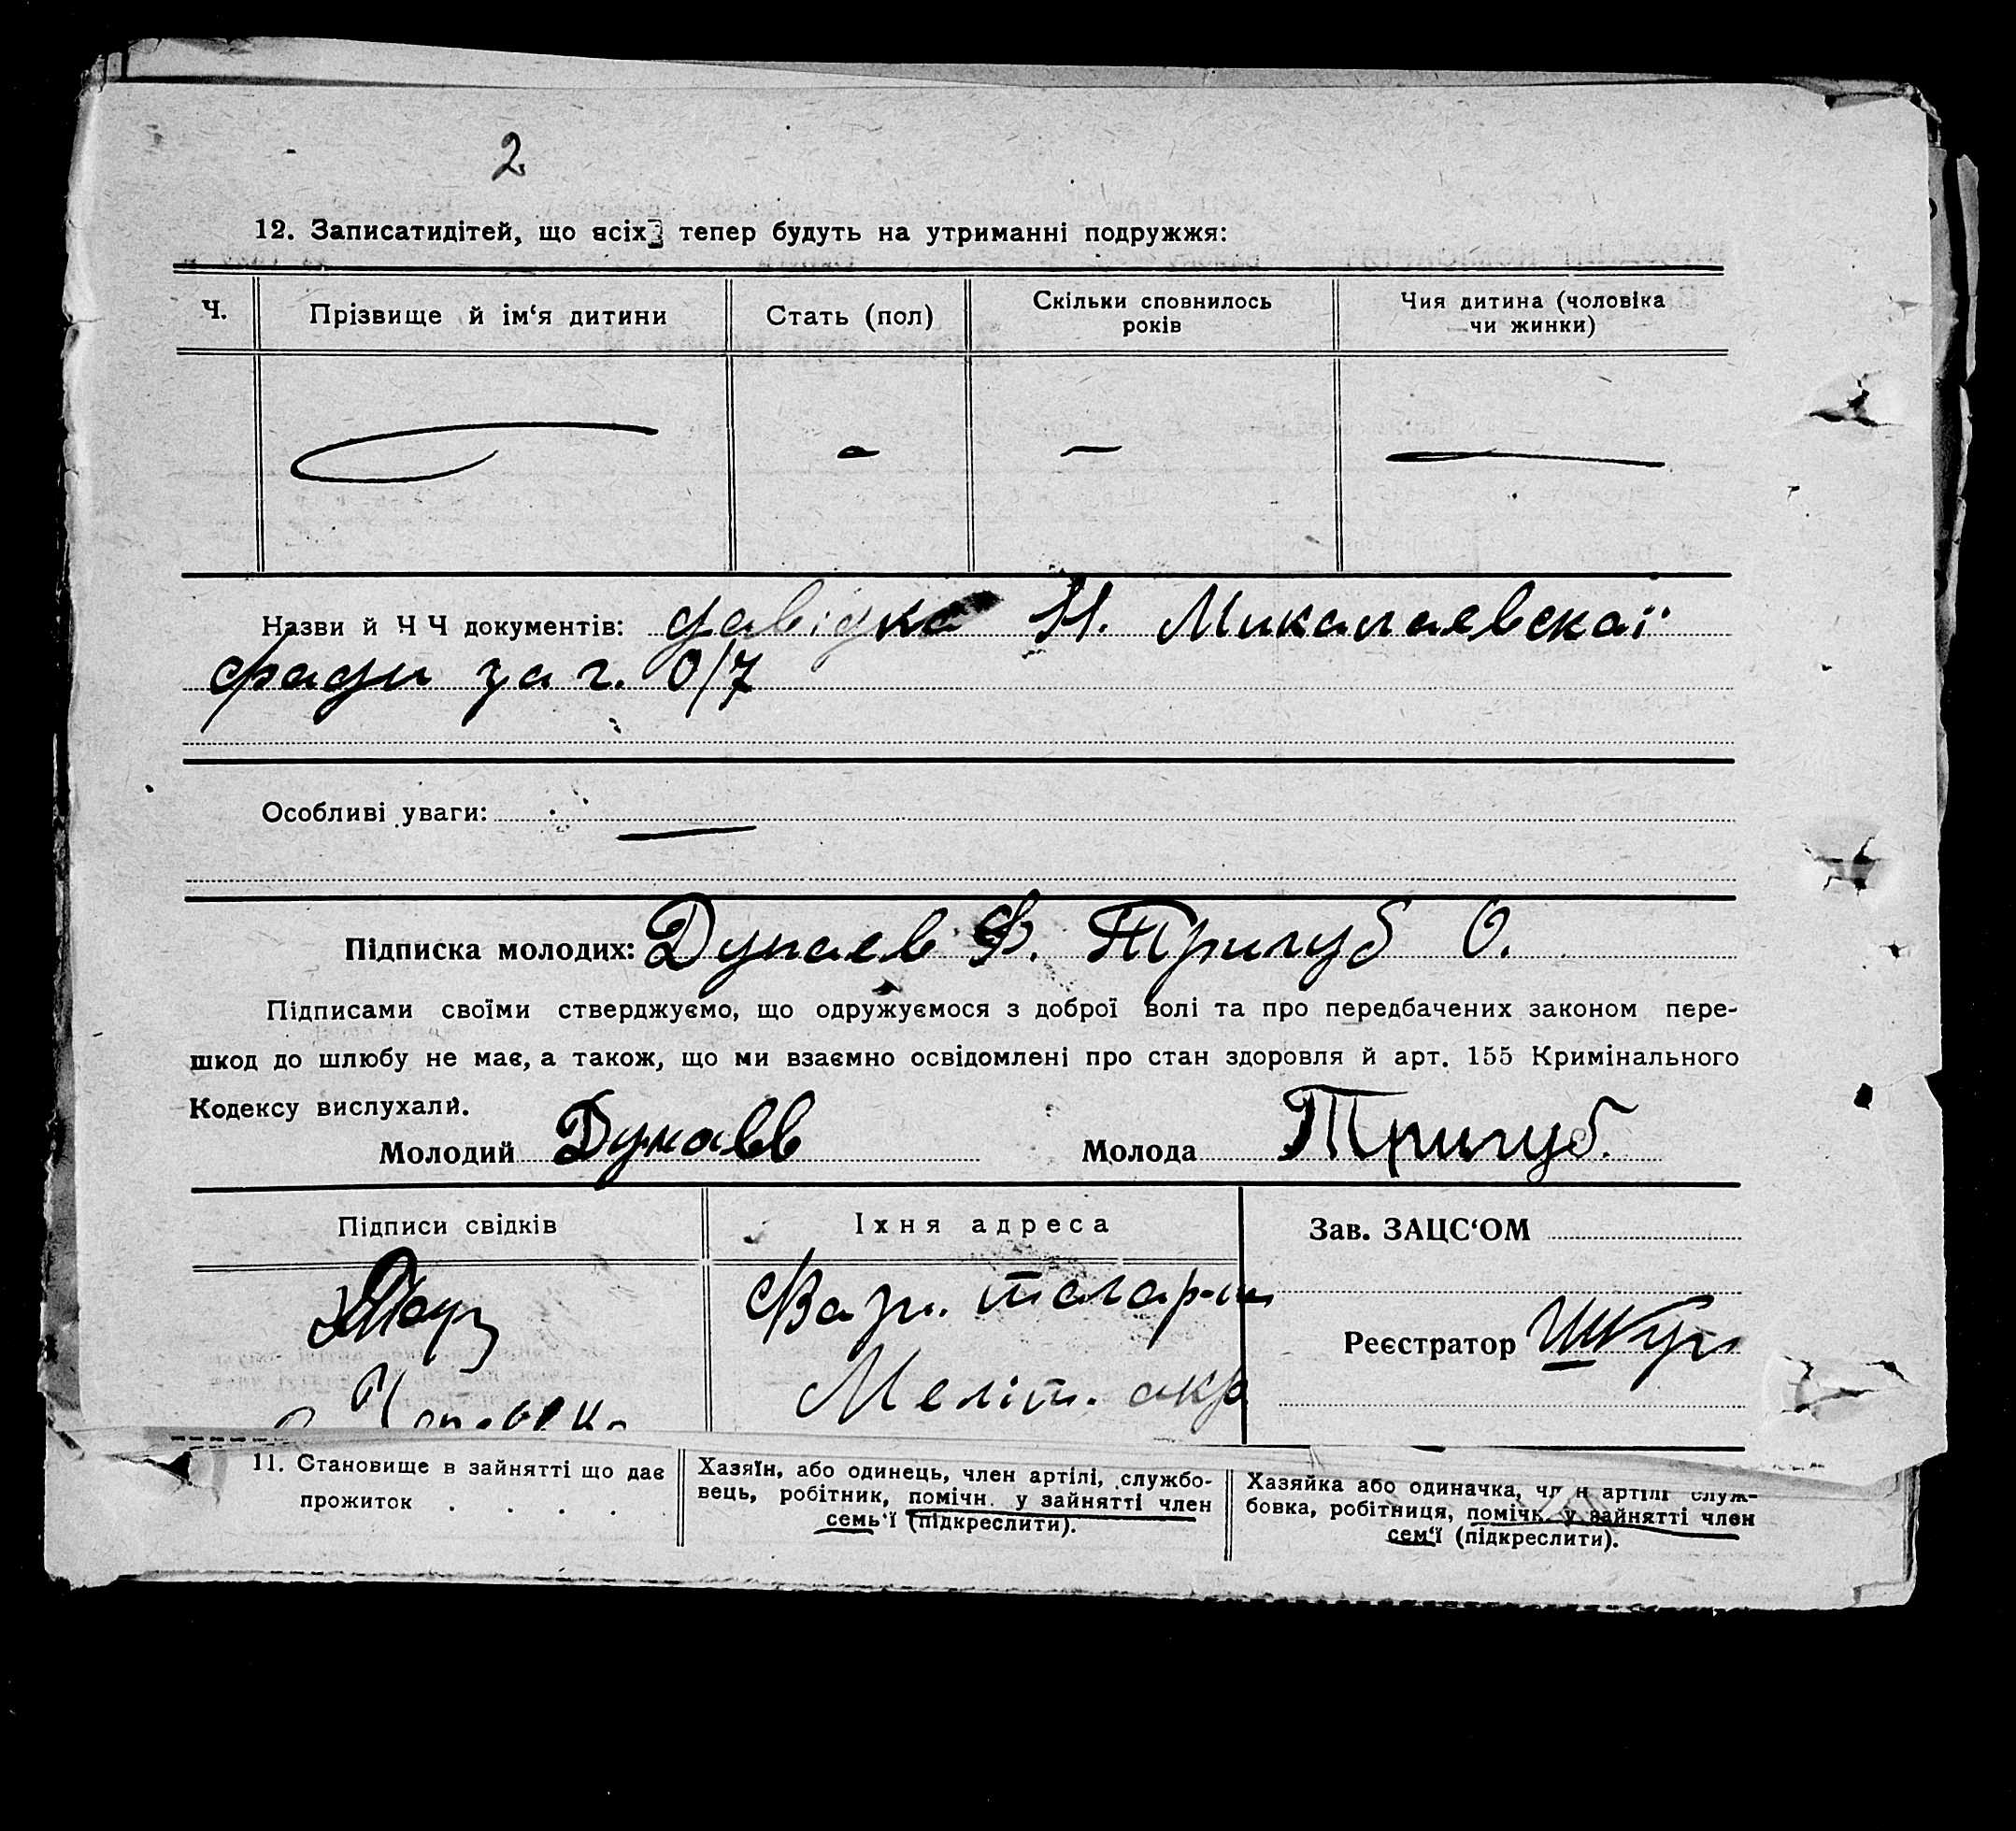 2
12. Записатидітей, що всіх тепер будуть на утриманні подружжя:
Ч.
Прізвище й ім‘я дитини
Стать (пол)
Скільки сповнилось
років
Чия дитина (чоловіка
чи жинки)
Назви й Ч Ч документів: давідка Н. Микалаевскаї
ради за г. 0/7
Особливі уваги:
Підписка молодих: Дунаев Ф. Тригуб О.
Підписами своїми стверджуємо, що одружуємося з доброї волі та про передбачених законом пере-
шкод до шлюбу не має, а також, що ми взаємно освідомлені про стан здоровля й арт. 155 Кримінального
Кодексу вислухали.
Молодий Дунаев Молода Тригуб.
Підписи свідків
Їхня адреса
Меліт. окр
Зав. ЗАЦС‘ОМ
Реєстратор
11. Становище в зайнятті що дає
прожиток . . . .
Хазяїн, або одинець, член артілі, службо-
вець, робітник, помічн. у зайнятті член
семь‘ї (підкреслити).
Хазяйка або одиначка, член артілі служ-
бовка, робітниця, помічк. у зайнятті член
сем‘ї (підкреслити).